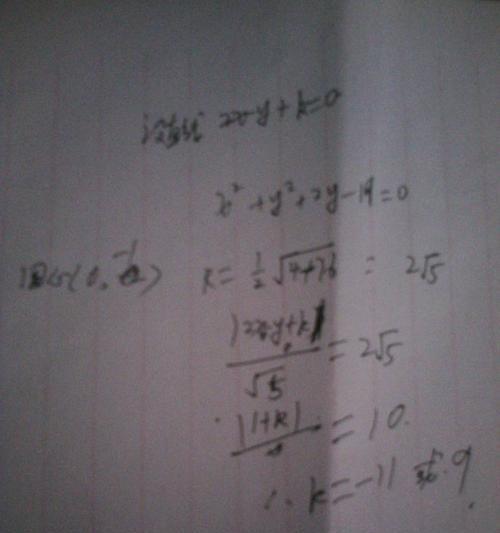 设直线 2x-y+k=0
x²+y²+2y-19=0
圆心(0,-1) R=½√4+76 = 2√5
|2x-y+k|/√5 = 2√5
|1+k| = 10.
∴ k=-11 或 9.